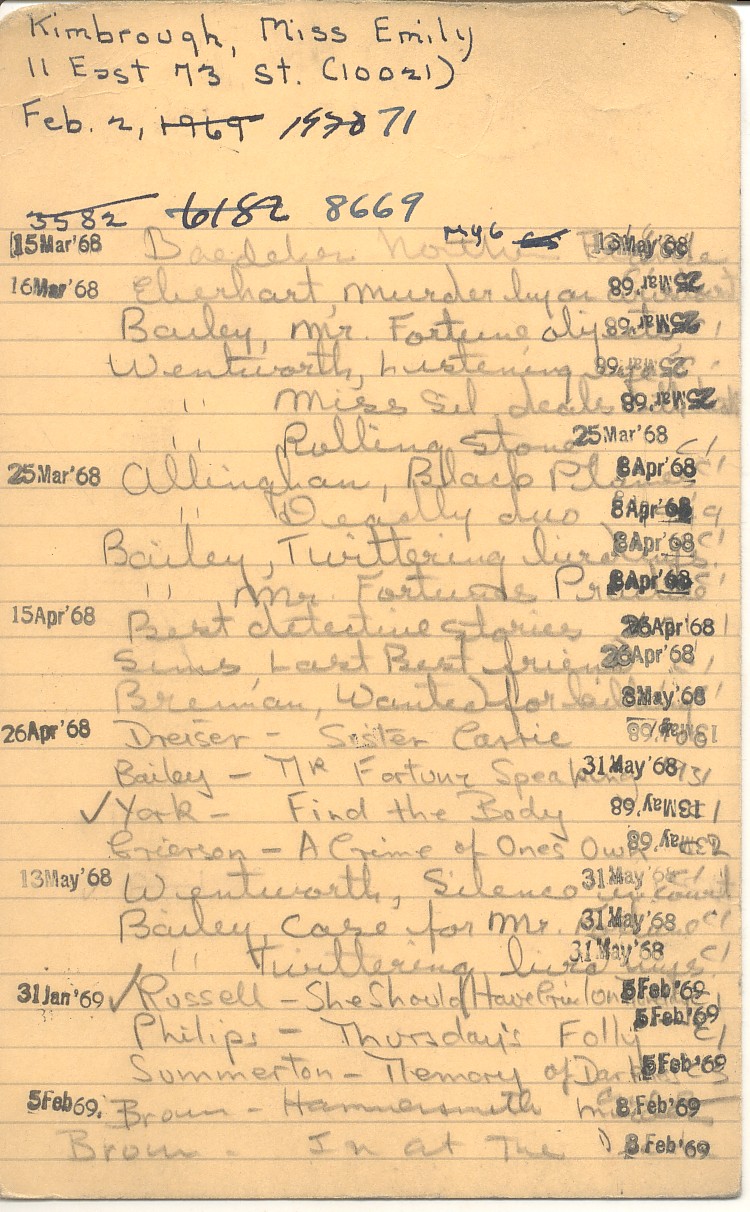 Kimbrough, Miss Emily
11 East 73 St. (10021)
Feb. 2, 1969 1970 71
3582 6182 8669
15Mar'68 Baedeker 13May'68
16Mar'68 Eberhart, Murder by an 25Mar'68
Bailey, Mr. Fortune objects 25Mar'68
Wentworth, Listening eye 25Mar'68
" Miss Sil deals 25Mar'68
" Rolling stone 25Mar'68 C1
25Mar'68 Allingham, Black Plumes 8Apr'68 C1
" Deadly duo 8Apr'68
Bailey, Twittering bird 8Apr'68
" Mr. Fortunes Pr 8Apr'68
15Apr'68 Best detective stories 26Apr'68
Sims, Last Best friend 26Apr'68
Brennan, Wanted for killing 8May'68
26Apr'68 Dreiser - Sister Carrie 13May'68
Bailey - Mr Fortune Speaking 31May'68
✓ York - Find the Body 13May'68
Grierson - A Crime of One's Own 13May'68
13May'68 Wentworth, Silence in court 31May'68
Bailey, Case for Mr. 31May'68 C1
" Twittering bird 31May'68 C1
31Jan'69 ✓ Russell - She Should Have 5Feb'69
Philips - Thursday's Folly 5Feb'69 C1
Summerton - Memory of Dark 5Feb'69
5Feb'69 Broun - Hammersmith 8Feb'69
Broun - In at The 8Feb'69